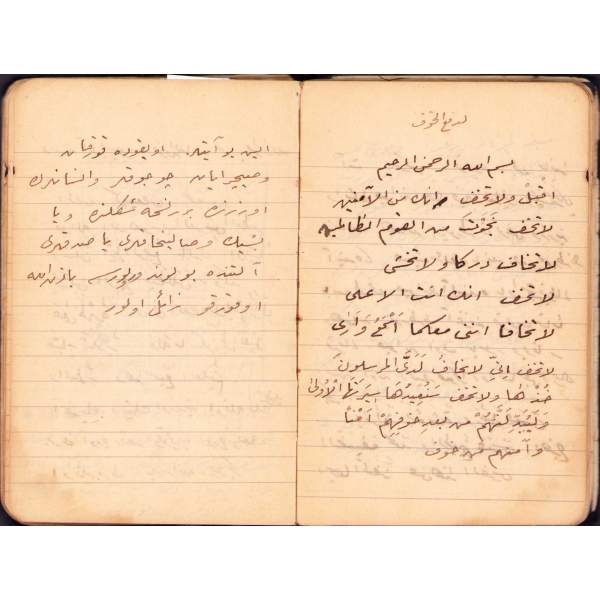 لدفع الخوف
بسم الله الرحمن الرحيم
اقبل ولا تخف انك من الآمنين
لا تخف نجوت من القوم الظالمين
لا تخاف دركا ولا تخشى
لا تخف انك انت الاعلى
لا تخافا اننى معكما اسمع وارى
لا تخف انى لا يخاف لدى المرسلون
خذها ولا تخف سنعيدها سيرتها الاولى
وليبدلنهم من بعد خوفهم امنا
وآمنهم من خوف
اليـ بو آيتلر اويقوده قورقان
وصيچرايان چوجوقلر وانسانلرك
اوزرنده بر نسخه شكلنده ويا
بشيك وصالينجاقلرى يا صدقلرى
آلتنده بولوندورولورسه باذن الله
اوقورقو زائل اولور